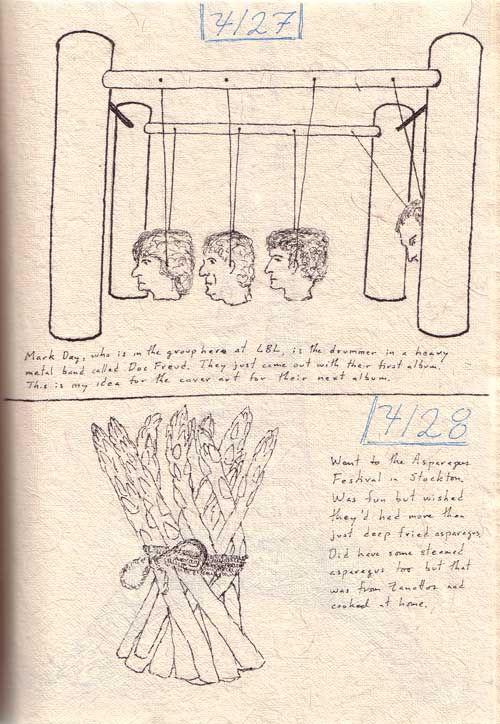 4/27
Mark Day, who is in the group here at LBL, is the drummer in a heavy
metal band called Doc Freud. They just came out with their first album.
This is my idea for the cover art for their next album.
4/28
Went to the Asparagus
Festival in Stockton.
Was fun but wished
they'd had more than
just deep fried asparagus.
Did have some steamed
asparagus too but that
was from Zanottos and
cooked at home.